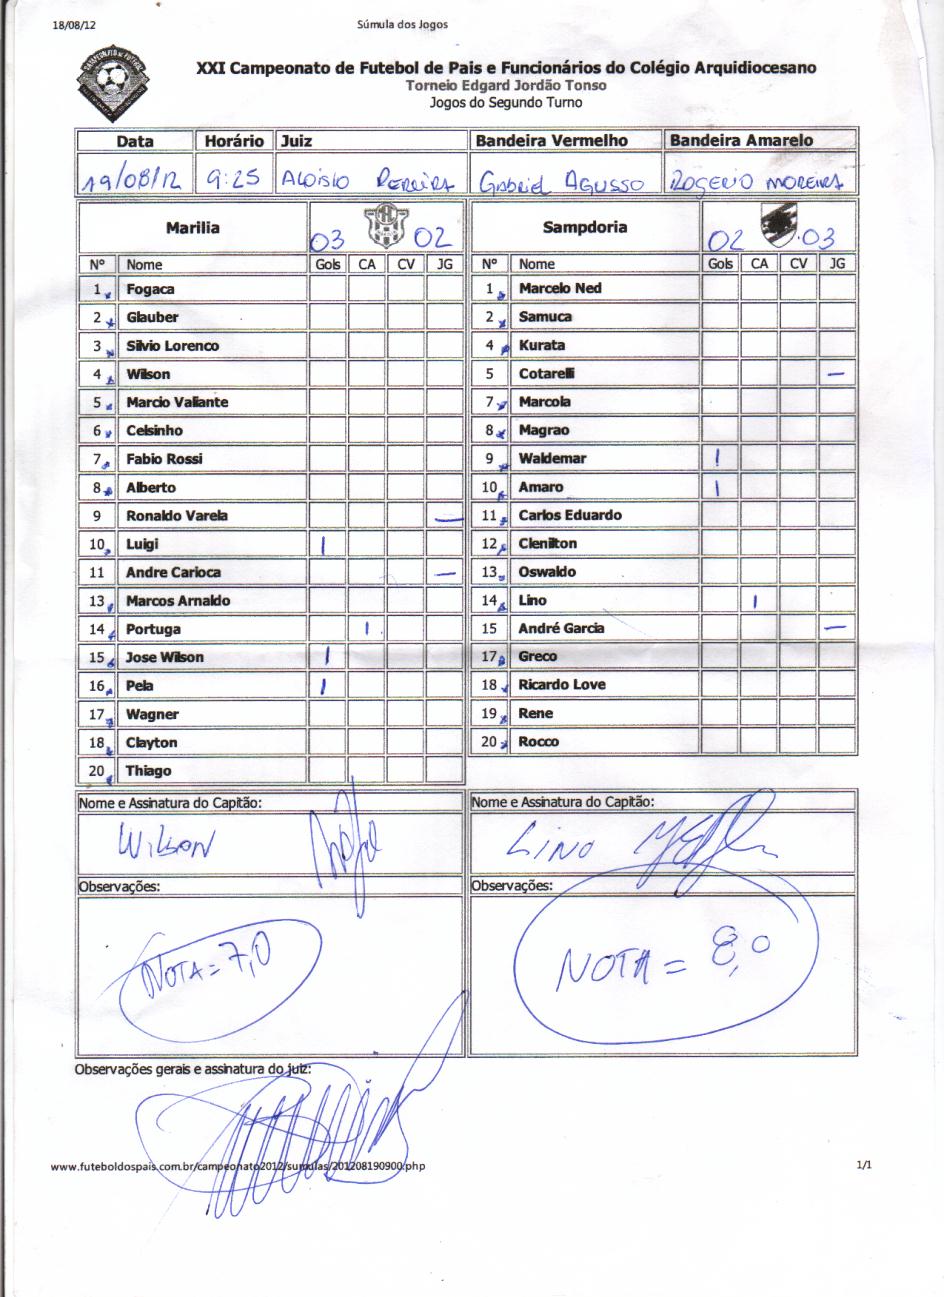 18/08/12 Súmula dos Jogos
XXI Campeonato de Futebol de Pais e Funcionários do Colégio Arquidiocesano
Torneio Edgard Jordão Tonso
Jogos do Segundo Turno
Data Horário Juiz Bandeira Vermelho Bandeira Amarelo
19/08/12 9:25 ALOISIO PEREIRA GABRIEL AGUSSO ROGERIO MOREIRA
Marilia 03 02 Sampdoria 02 03
Nº Nome Gols CA CV JG Nº Nome Gols CA CV JG
1 Fogaca 1 Marcelo Ned
2 Glauber 2 Samuca
3 Silvio Lorenco 4 Kurata
4 Wilson 5 Cotarelli —
5 Marcio Valiante 7 Marcola
6 Celsinho 8 Magrao
7 Fabio Rossi 9 Waldemar |
8 Alberto 10 Amaro |
9 Ronaldo Varela — 11 Carlos Eduardo
10 Luigi | 12 Clenilton
11 Andre Carioca — 13 Oswaldo
13 Marcos Arnaldo 14 Lino |
14 Portuga | 15 André Garcia —
15 Jose Wilson | 17 Greco
16 Pela | 18 Ricardo Love
17 Wagner 19 Rene
18 Clayton 20 Rocco
20 Thiago
Nome e Assinatura do Capitão: Nome e Assinatura do Capitão:
WILSON LINO
Observações: Observações:
NOTA = 7,0 NOTA = 8,0
Observações gerais e assinatura do juiz:
www.futeboldospais.com.br/campeonato2012/sumulas/201208190900.php 1/1